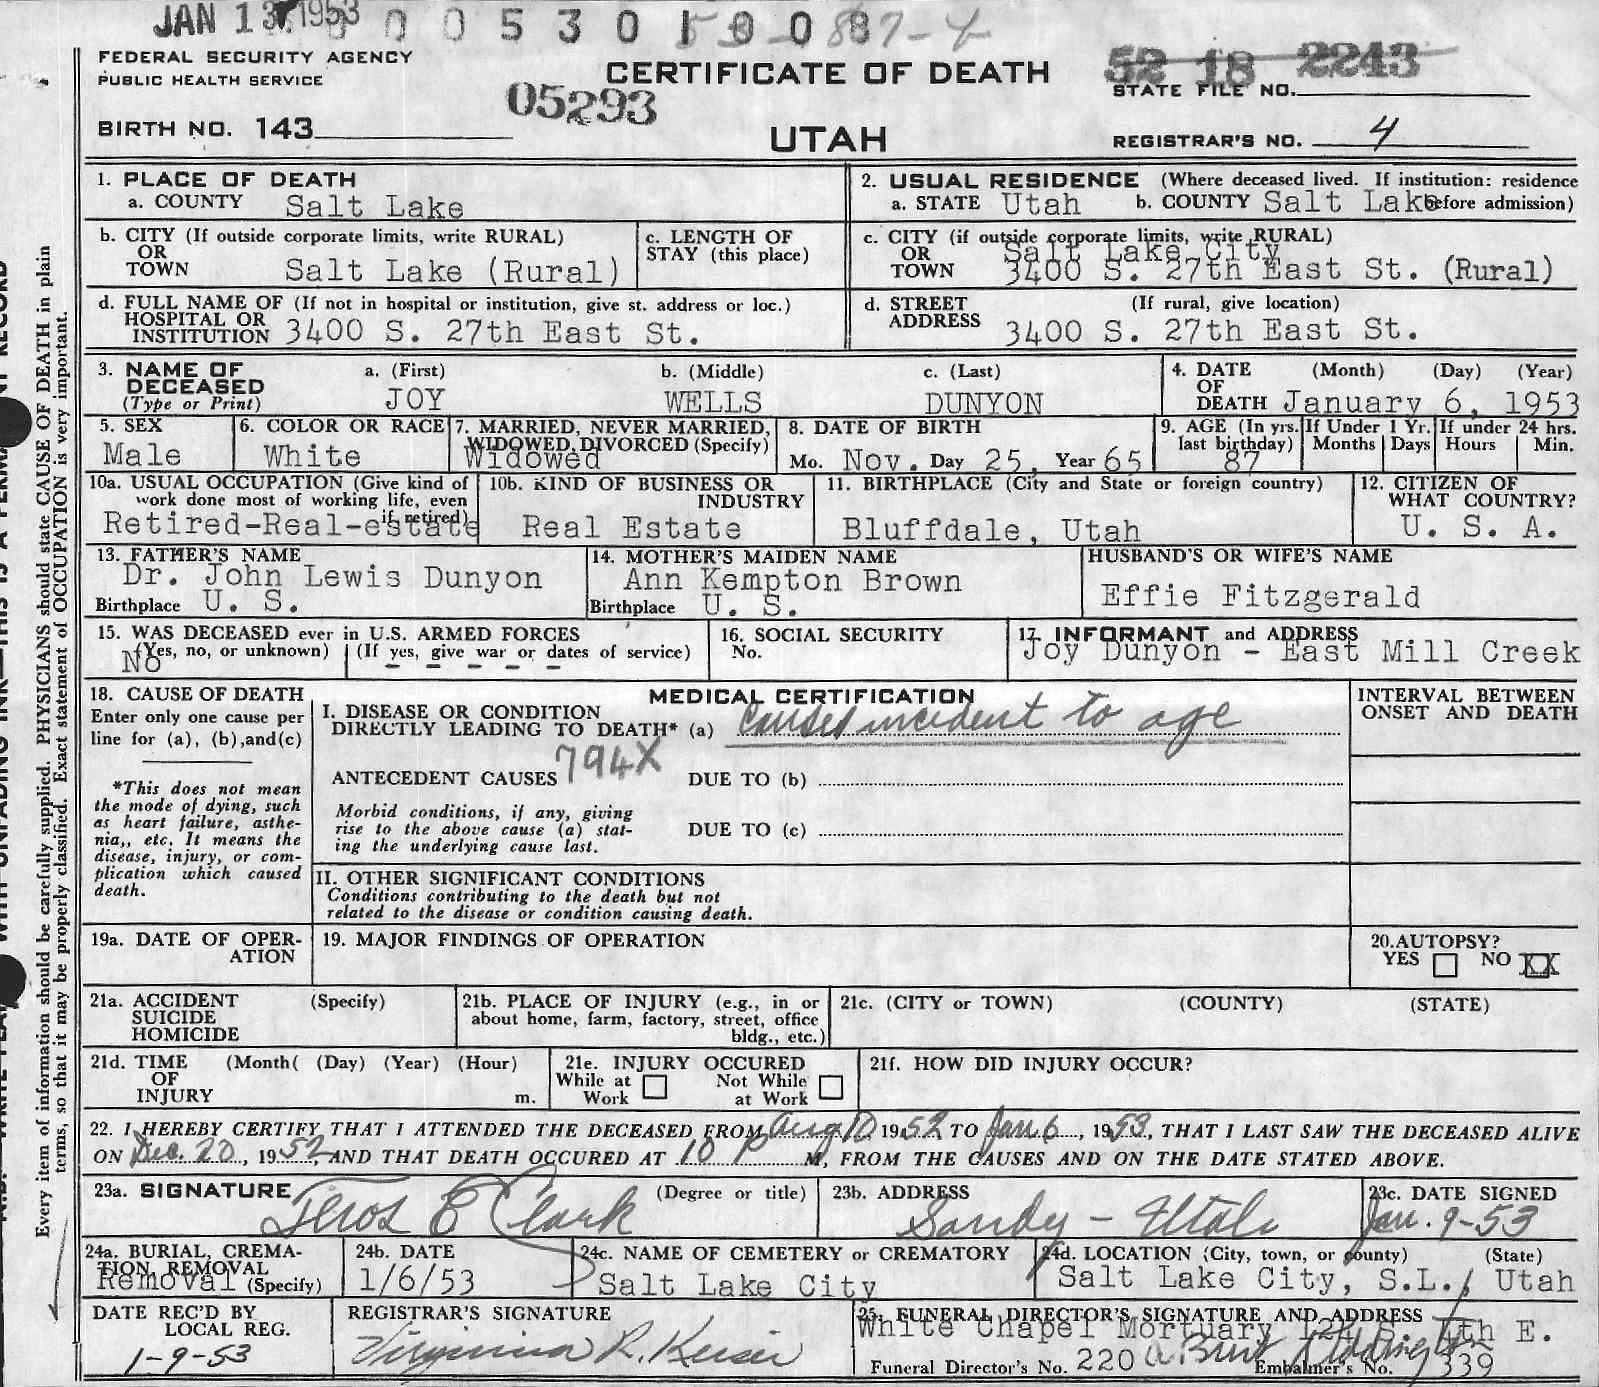 JAN 13 1953
0 0 5 3 0 1 0 0 8
87-4
FEDERAL SECURITY AGENCY
PUBLIC HEALTH SERVICE
CERTIFICATE OF DEATH
52 18 2243
STATE FILE NO.
05293
BIRTH NO. 143
UTAH
REGISTRAR'S NO. 4
1. PLACE OF DEATH
a. COUNTY Salt Lake
2. USUAL RESIDENCE (Where deceased lived. If institution: residence
a. STATE Utah b. COUNTY Salt Lake before admission)
b. CITY (If outside corporate limits, write RURAL)
OR
TOWN Salt Lake (Rural)
c. LENGTH OF
STAY (this place)
c. CITY (if outside corporate limits, write RURAL)
OR Salt Lake City
TOWN 3400 S. 27th East St. (Rural)
d. FULL NAME OF (If not in hospital or institution, give st. address or loc.)
HOSPITAL OR
INSTITUTION 3400 S. 27th East St.
d. STREET (If rural, give location)
ADDRESS 3400 S. 27th East St.
3. NAME OF DECEASED (Type or Print)
a. (First) b. (Middle) c. (Last)
JOY WELLS DUNYON
4. DATE (Month) (Day) (Year)
OF
DEATH January 6, 1953
5. SEX
Male
6. COLOR OR RACE
White
7. MARRIED, NEVER MARRIED,
WIDOWED, DIVORCED (Specify)
Widowed
8. DATE OF BIRTH
Mo. Nov. Day 25, Year 65
9. AGE (In yrs. last birthday)
87
If Under 1 Yr. Months Days
If under 24 hrs. Hours Min.
10a. USUAL OCCUPATION (Give kind of
work done most of working life, even
if retired)
Retired-Real-estate
10b. KIND OF BUSINESS OR
INDUSTRY
Real Estate
11. BIRTHPLACE (City and State or foreign country)
Bluffdale, Utah
12. CITIZEN OF
WHAT COUNTRY?
U. S. A.
13. FATHER'S NAME
Dr. John Lewis Dunyon
Birthplace U. S.
14. MOTHER'S MAIDEN NAME
Ann Kempton Brown
Birthplace U. S.
HUSBAND'S OR WIFE'S NAME
Effie Fitzgerald
15. WAS DECEASED ever in U.S. ARMED FORCES
(Yes, no, or unknown) (If yes, give war or dates of service)
No - - - - -
16. SOCIAL SECURITY
No.
17. INFORMANT and ADDRESS
Joy Dunyon - East Mill Creek
18. CAUSE OF DEATH
Enter only one cause per
line for (a), (b),and(c)
*This does not mean
the mode of dying, such
as heart failure, asthe-
nia,, etc. It means the
disease, injury, or com-
plication which caused
death.
MEDICAL CERTIFICATION
I. DISEASE OR CONDITION
DIRECTLY LEADING TO DEATH* (a) Causes incident to age
794X
ANTECEDENT CAUSES DUE TO (b)
Morbid conditions, if any, giving
rise to the above cause (a) stat-
ing the underlying cause last.
DUE TO (c)
II. OTHER SIGNIFICANT CONDITIONS
Conditions contributing to the death but not
related to the disease or condition causing death.
INTERVAL BETWEEN
ONSET AND DEATH
19a. DATE OF OPER-
ATION
19. MAJOR FINDINGS OF OPERATION
20.AUTOPSY?
YES NO XX
21a. ACCIDENT (Specify)
SUICIDE
HOMICIDE
21b. PLACE OF INJURY (e.g., in or
about home, farm, factory, street, office
bldg., etc.)
21c. (CITY or TOWN) (COUNTY) (STATE)
21d. TIME (Month( (Day) (Year) (Hour)
OF
INJURY m.
21e. INJURY OCCURED
While at Work Not While at Work
21f. HOW DID INJURY OCCUR?
22. I HEREBY CERTIFY THAT I ATTENDED THE DECEASED FROM Aug 10, 1952 TO Jan 6, 1953, THAT I LAST SAW THE DECEASED ALIVE
ON Dec. 20, 1952, AND THAT DEATH OCCURED AT 10 P M, FROM THE CAUSES AND ON THE DATE STATED ABOVE.
23a. SIGNATURE (Degree or title)
E Clark
23b. ADDRESS
Sandy - Utah
23c. DATE SIGNED
Jan. 9-53
24a. BURIAL, CREMA-
TION, REMOVAL
Removal (Specify)
24b. DATE
1/6/53
24c. NAME OF CEMETERY or CREMATORY
Salt Lake City
24d. LOCATION (City, town, or county) (State)
Salt Lake City, S.L., Utah
DATE REC'D BY
LOCAL REG.
1-9-53
REGISTRAR'S SIGNATURE
Virginia R. Keiser
25. FUNERAL DIRECTOR'S SIGNATURE AND ADDRESS
White Chapel Mortuary 124 S. 4th E.
Funeral Director's No. 220 Embalmer's No. 339
Every item of information should be carefully supplied. PHYSICIANS should state CAUSE OF DEATH in plain
terms, so that it may be properly classified. Exact statement of OCCUPATION is very important.